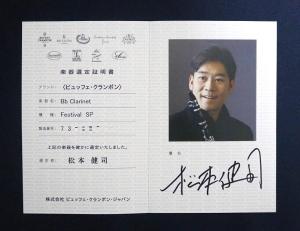 楽器選定証明書
ブランド: 〈ビュッフェ・クランポン〉
楽器名: Bb Clarinet
機種: Festival SP
製造番号:
上記の楽器を確かに選定いたしました。
選定者: 松本 健司
株式会社 ビュッフェ・クランポン・ジャパン
署名
松本健司